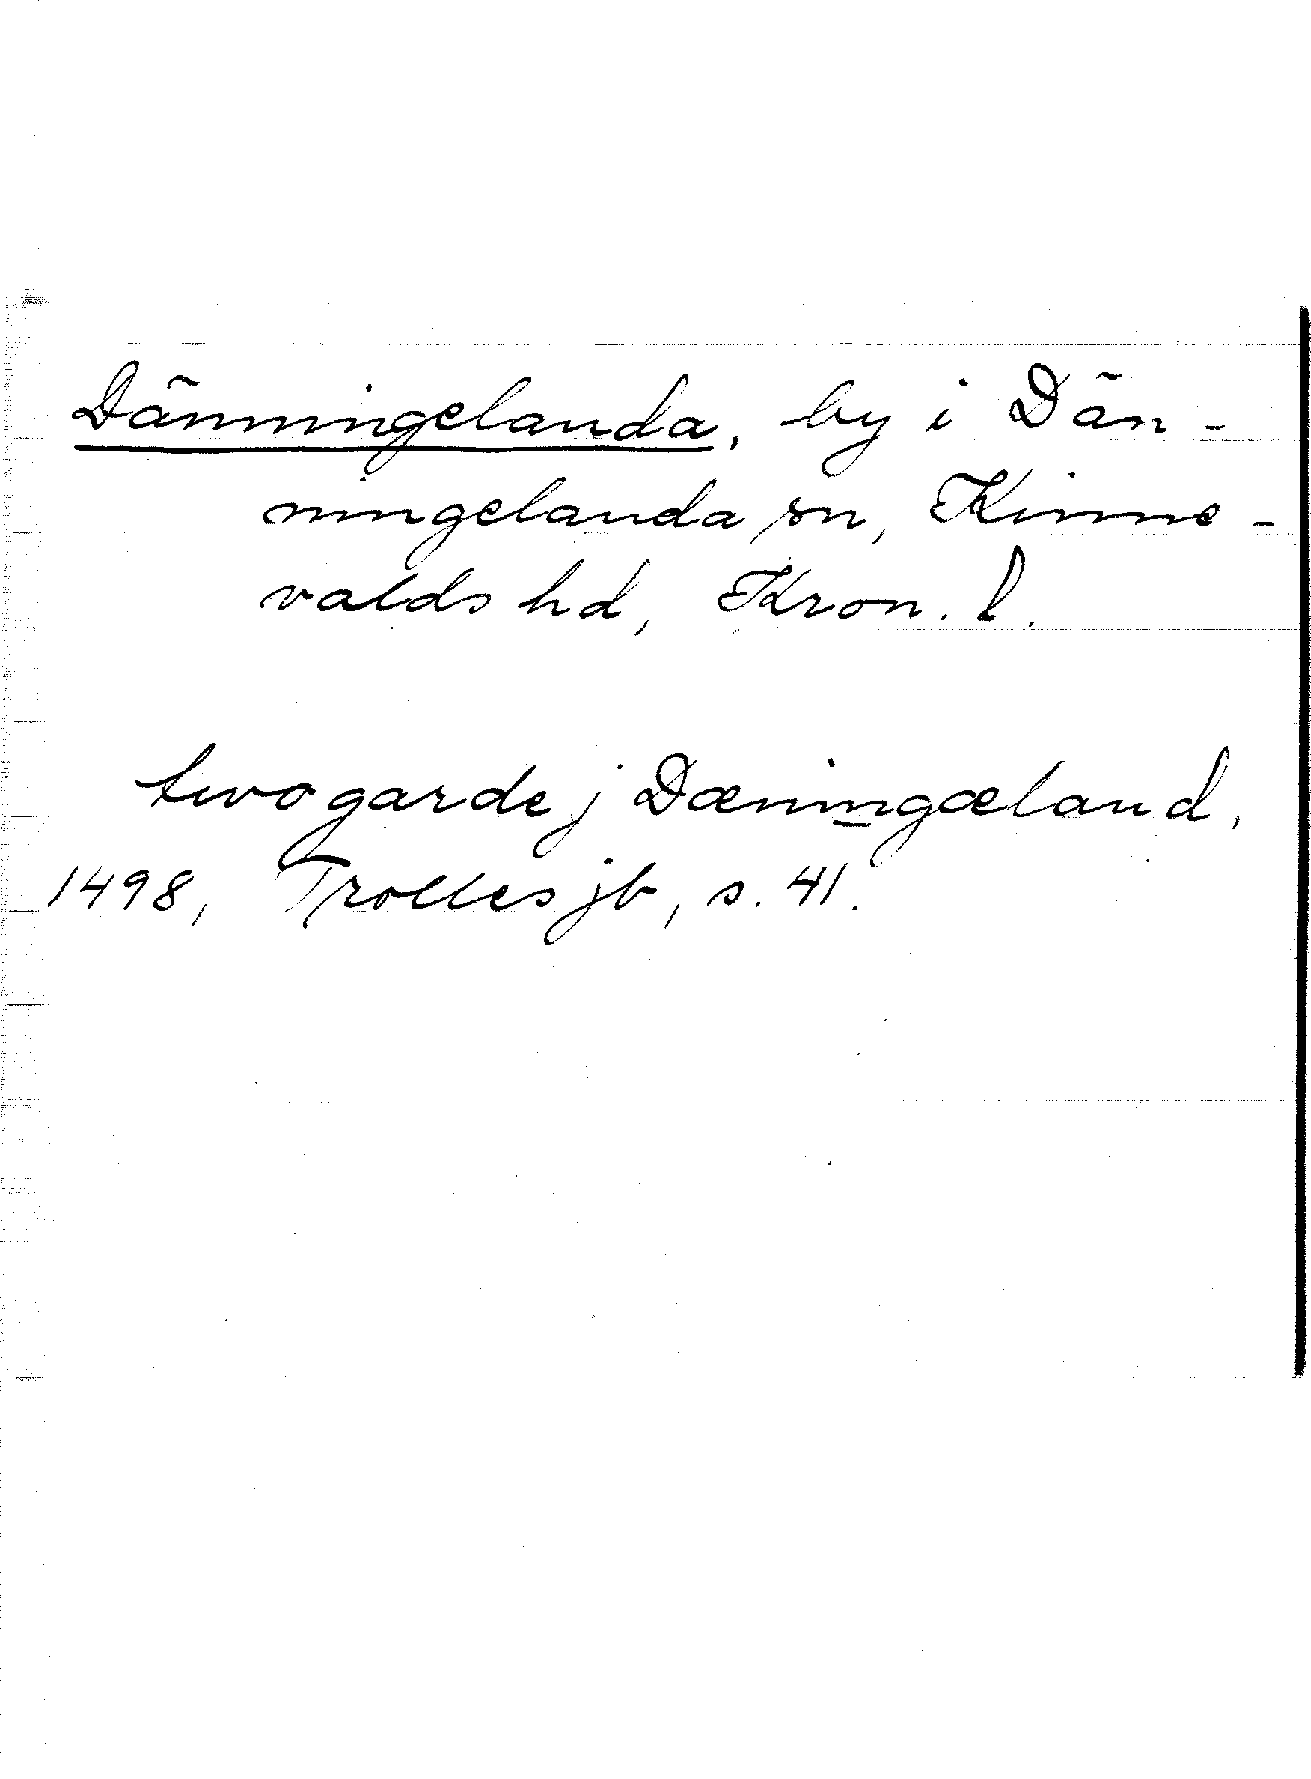 Dänningelanda, by i Dän-
ningelanda sn, Kinne-
valds hd, Kron. l.
two garde j Dæningæland,
1498, Trolles jb, s. 41.